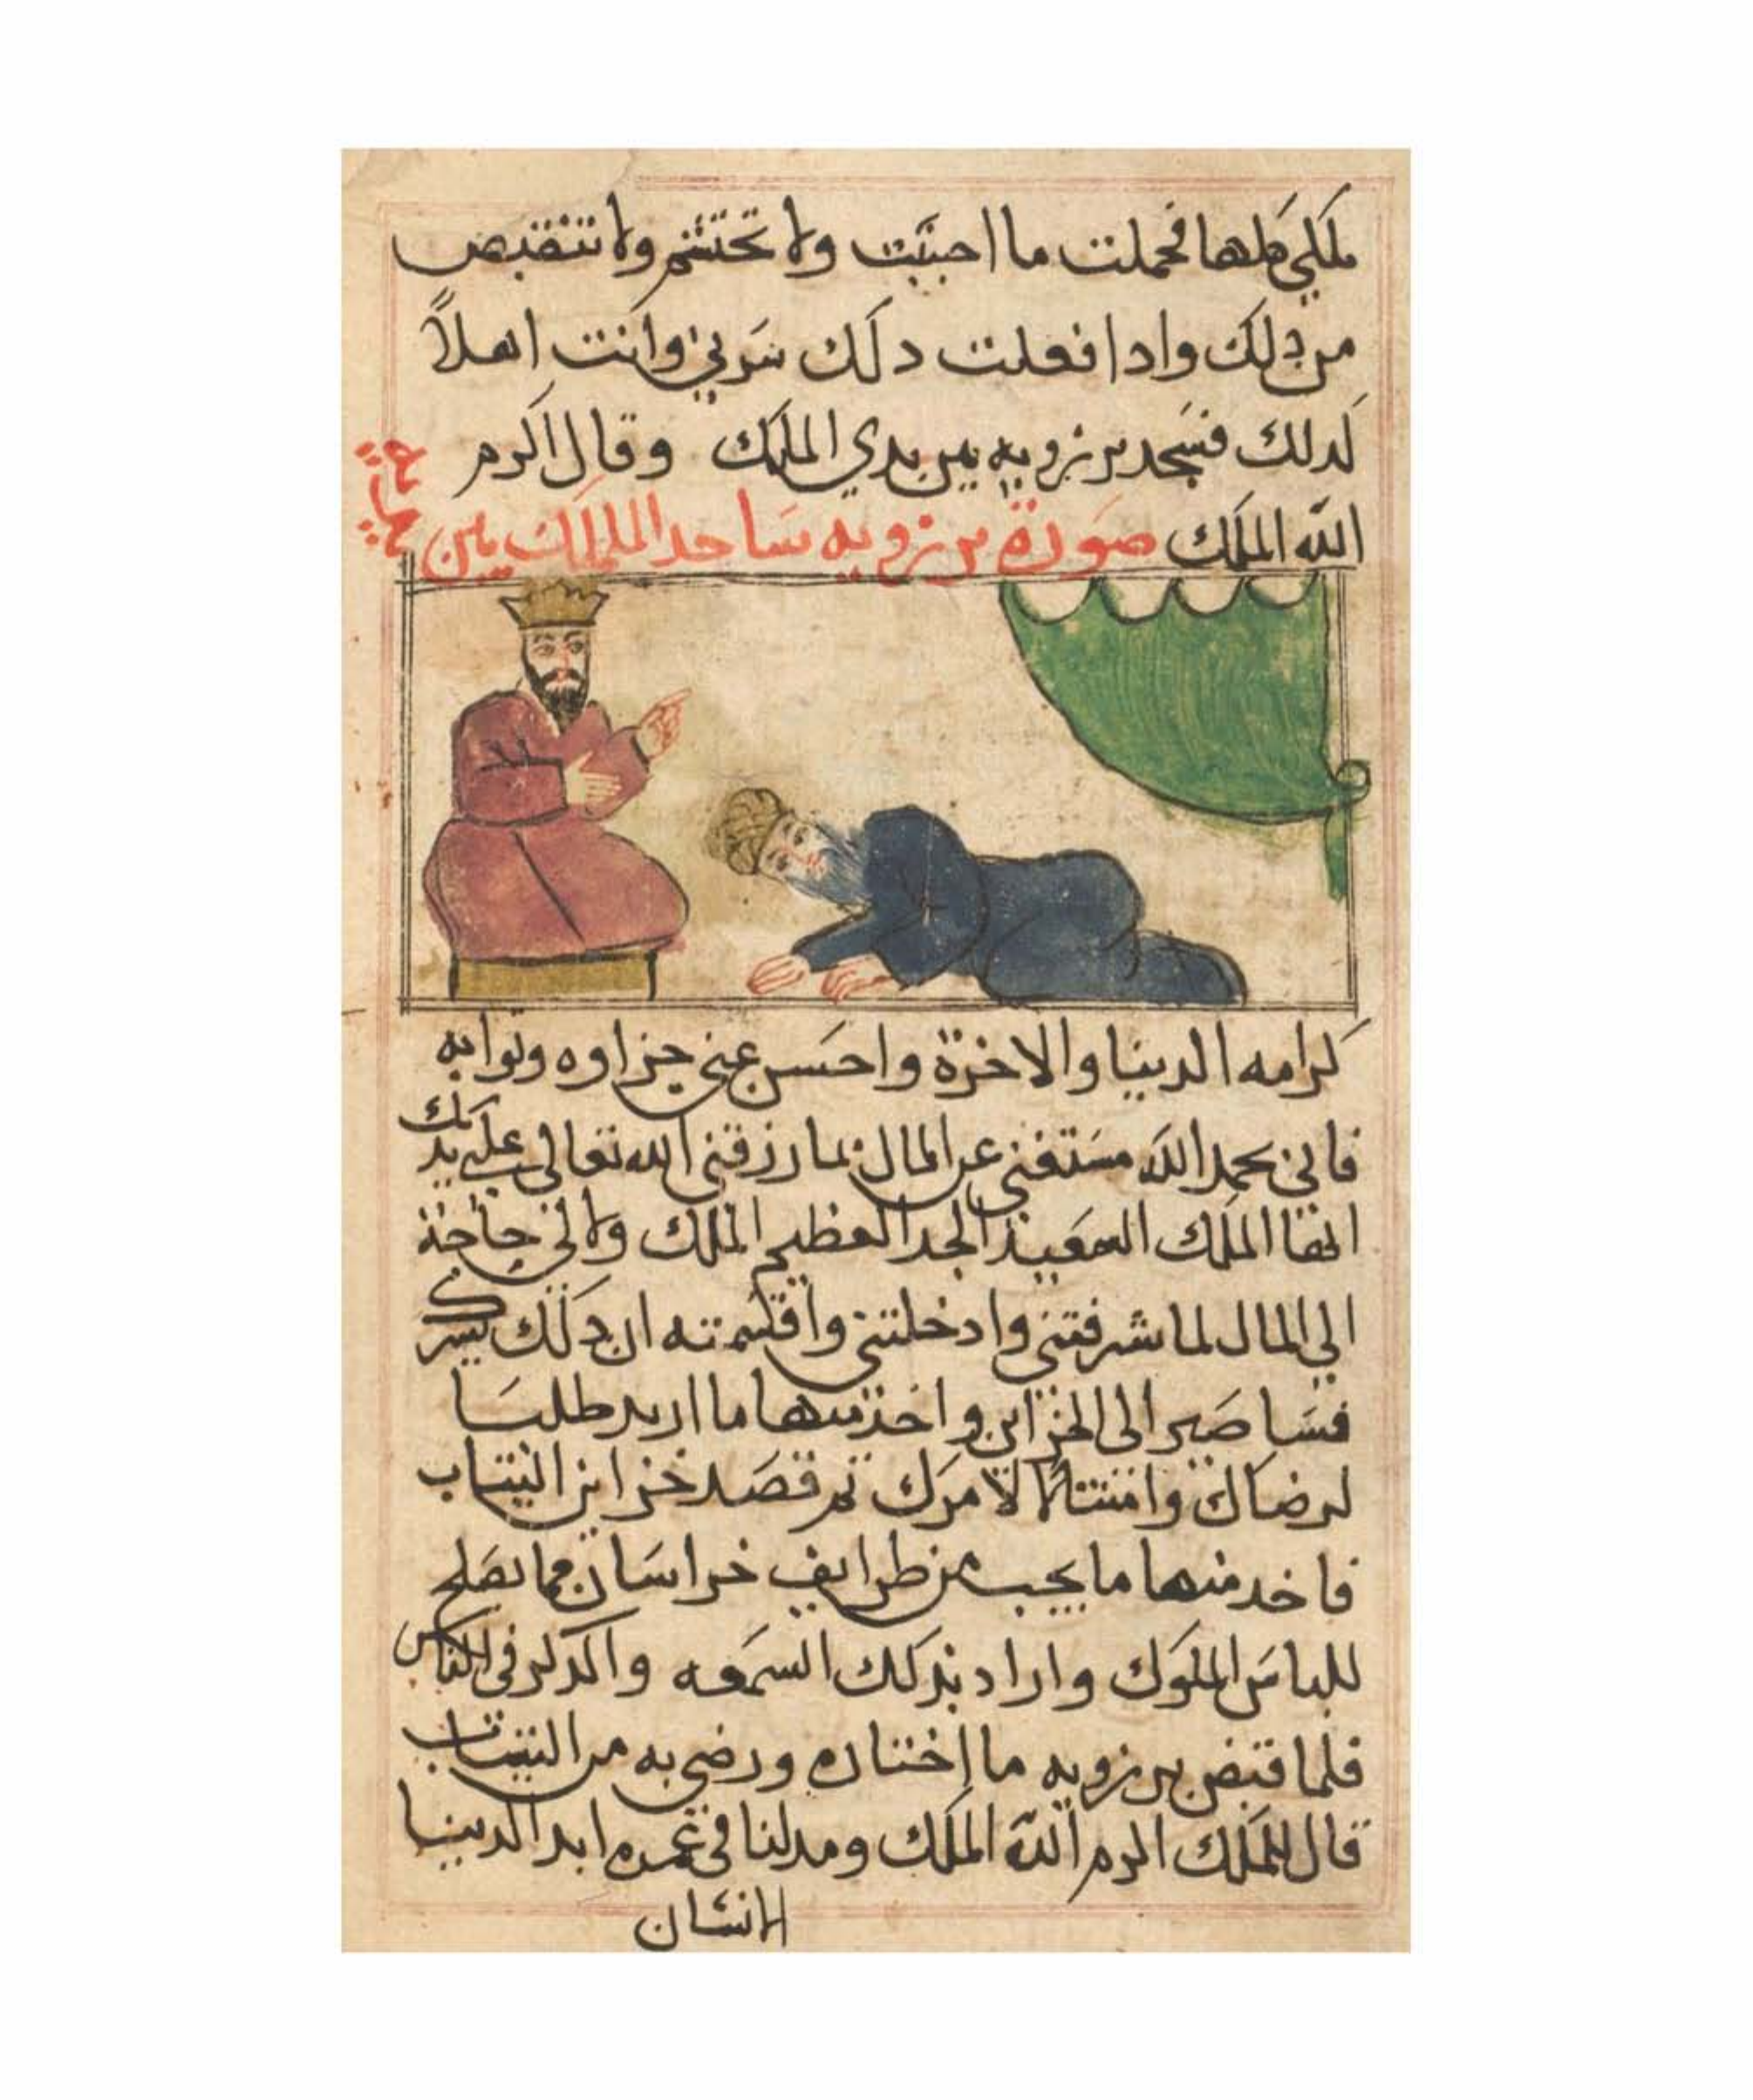 ملكي كلها فحملت ما احببت ولا تحتشم ولا تنقبض
من ذلك وادا فعلت دلك سرني وانت اهلاً
لدلك فسجد برزويه بين يدي الملك وقال اكرم
الله الملك صورة برزويه ساجد الملك بين
كرامه الدينا والاخرة واحسن عني جزاوه وثوابه
فاني بحمد الله مستغني عن المال بما رزقني الله تعالى على يدك
ايها الملك السعيد الجد العظيم الملك ولا لي حاجة
الي المال لما شرفتني وادخلتني واقسمته ان دلك يسرك
فساصير الى الخزاين واخذ منها ما اريد طلبا
لرضاك وامتثالا لامرك ثم قصد خزاين الثياب
فاخد منها ما يجب من طرايف خراسان مما يصلح
للباس الملوك واراد بذلك السمعه والدكر في الناس
فلما قبض برزويه ما اختاره ورضي به من الثياب
قال للملك اكرم الله الملك ومد لنا في عمره ابد الدينا
الانسان